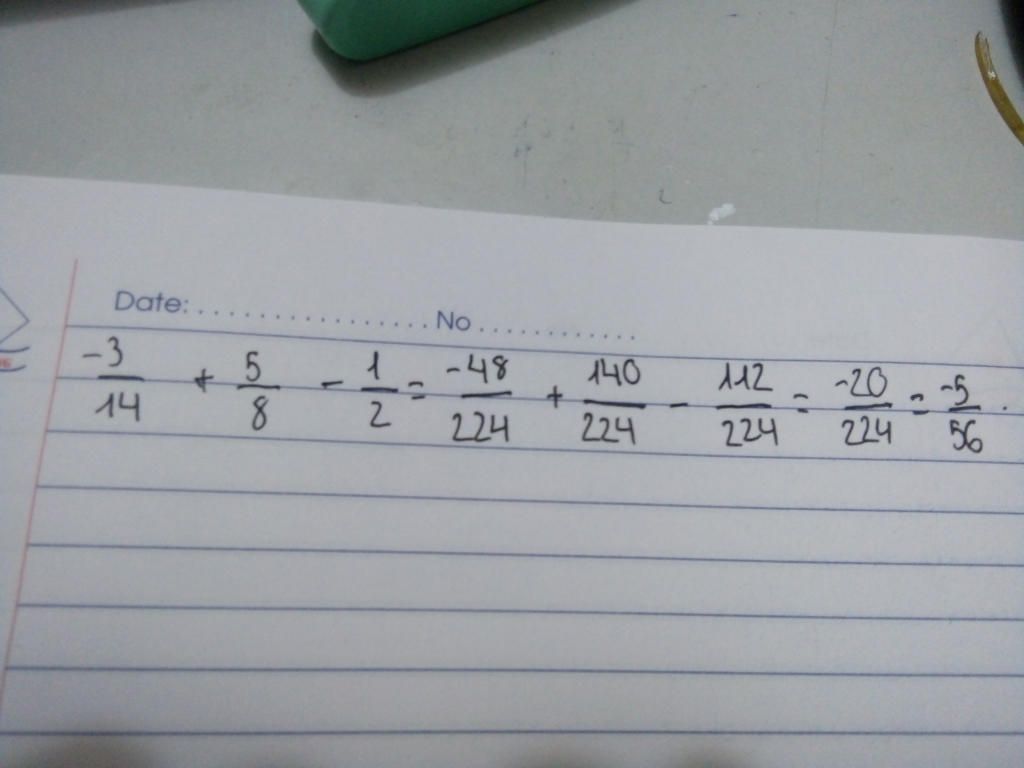 Date: ................. No ............
-3/14 + 5/8 - 1/2 = -48/224 + 140/224 - 112/224 = -20/224 = -5/56 .